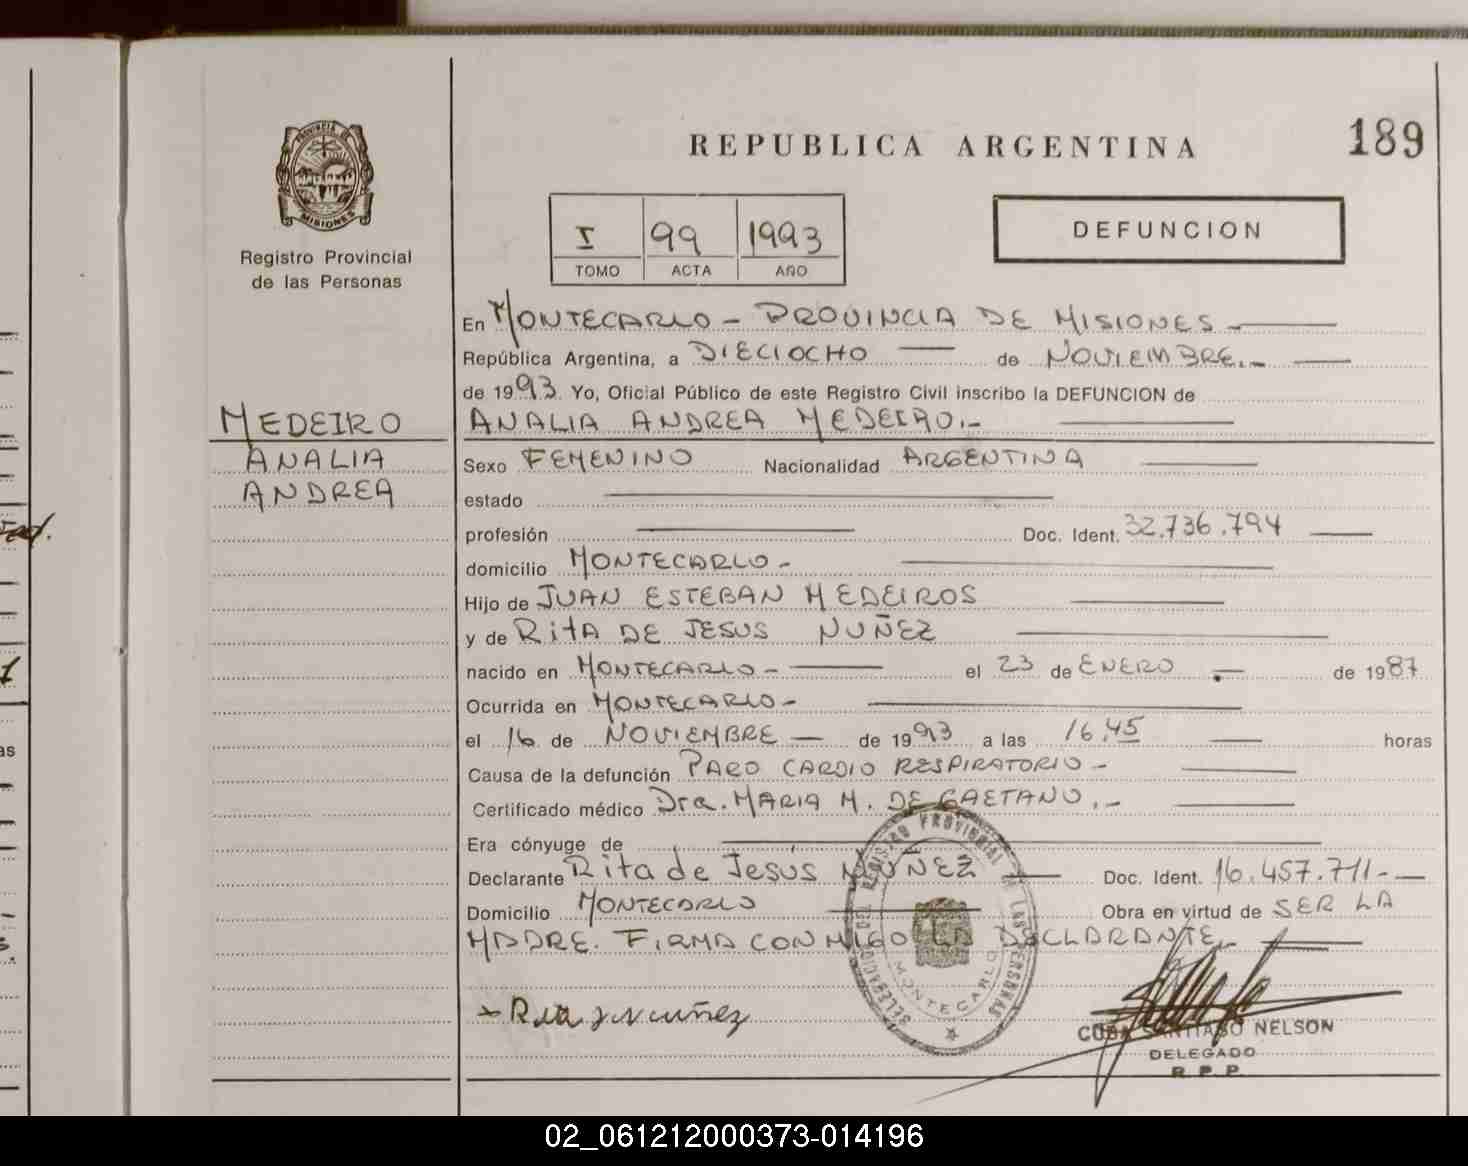 189
REPUBLICA ARGENTINA
PROVINCIA DE
MISIONES
Registro Provincial
de las Personas
DEFUNCION
I 99 1993
TOMO ACTA AÑO
En MONTECARLO - PROVINCIA DE MISIONES
República Argentina, a DIECIOCHO de NOVIEMBRE.-
de 1993. Yo, Oficial Público de este Registro Civil inscribo la DEFUNCION de
MEDEIRO
ANALIA ANDREA MEDEIRO.-
ANALIA
Sexo FEMENINO Nacionalidad ARGENTINA
ANDREA
estado
profesión Doc. Ident. 32.736.794
domicilio MONTECARLO-
Hijo de JUAN ESTEBAN MEDEIROS
y de RitA DE JESUS NUÑEZ
nacido en MONTECARLO- el 23 de ENERO de 1987
Ocurrida en MONTECARLO-
el 16 de NOVIEMBRE de 1993 a las 16,45 horas
Causa de la defunción PARO CARDIO RESPIRATORIO-
Certificado médico Dra. MARIA M. DE GAETANO.-
Era cónyuge de
Declarante Rita de Jesús NUÑEZ Doc. Ident. 16.457.711-
Domicilio MONTECARLO Obra en virtud de SER LA
MADRE. FIRMA CONMIGO LA DECLARANTE.-
REGISTRO PROVINCIAL DE LAS PERSONAS
MONTECARLO
CUBA SANTIAGO NELSON
DELEGADO
R. P. P.
02_061212000373-014196